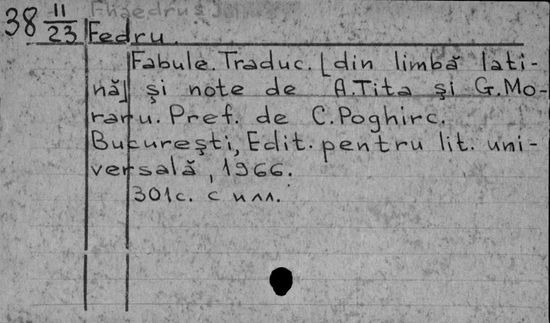 Phaedrus
38 11/23
Fedru.
Fabule. Traduc. [din limbă lati-
nă] și note de A.Tita și G.Mo-
raru. Pref. de C.Poghirc.
București, Edit. pentru lit. uni-
versală, 1966.
301с. с илл.